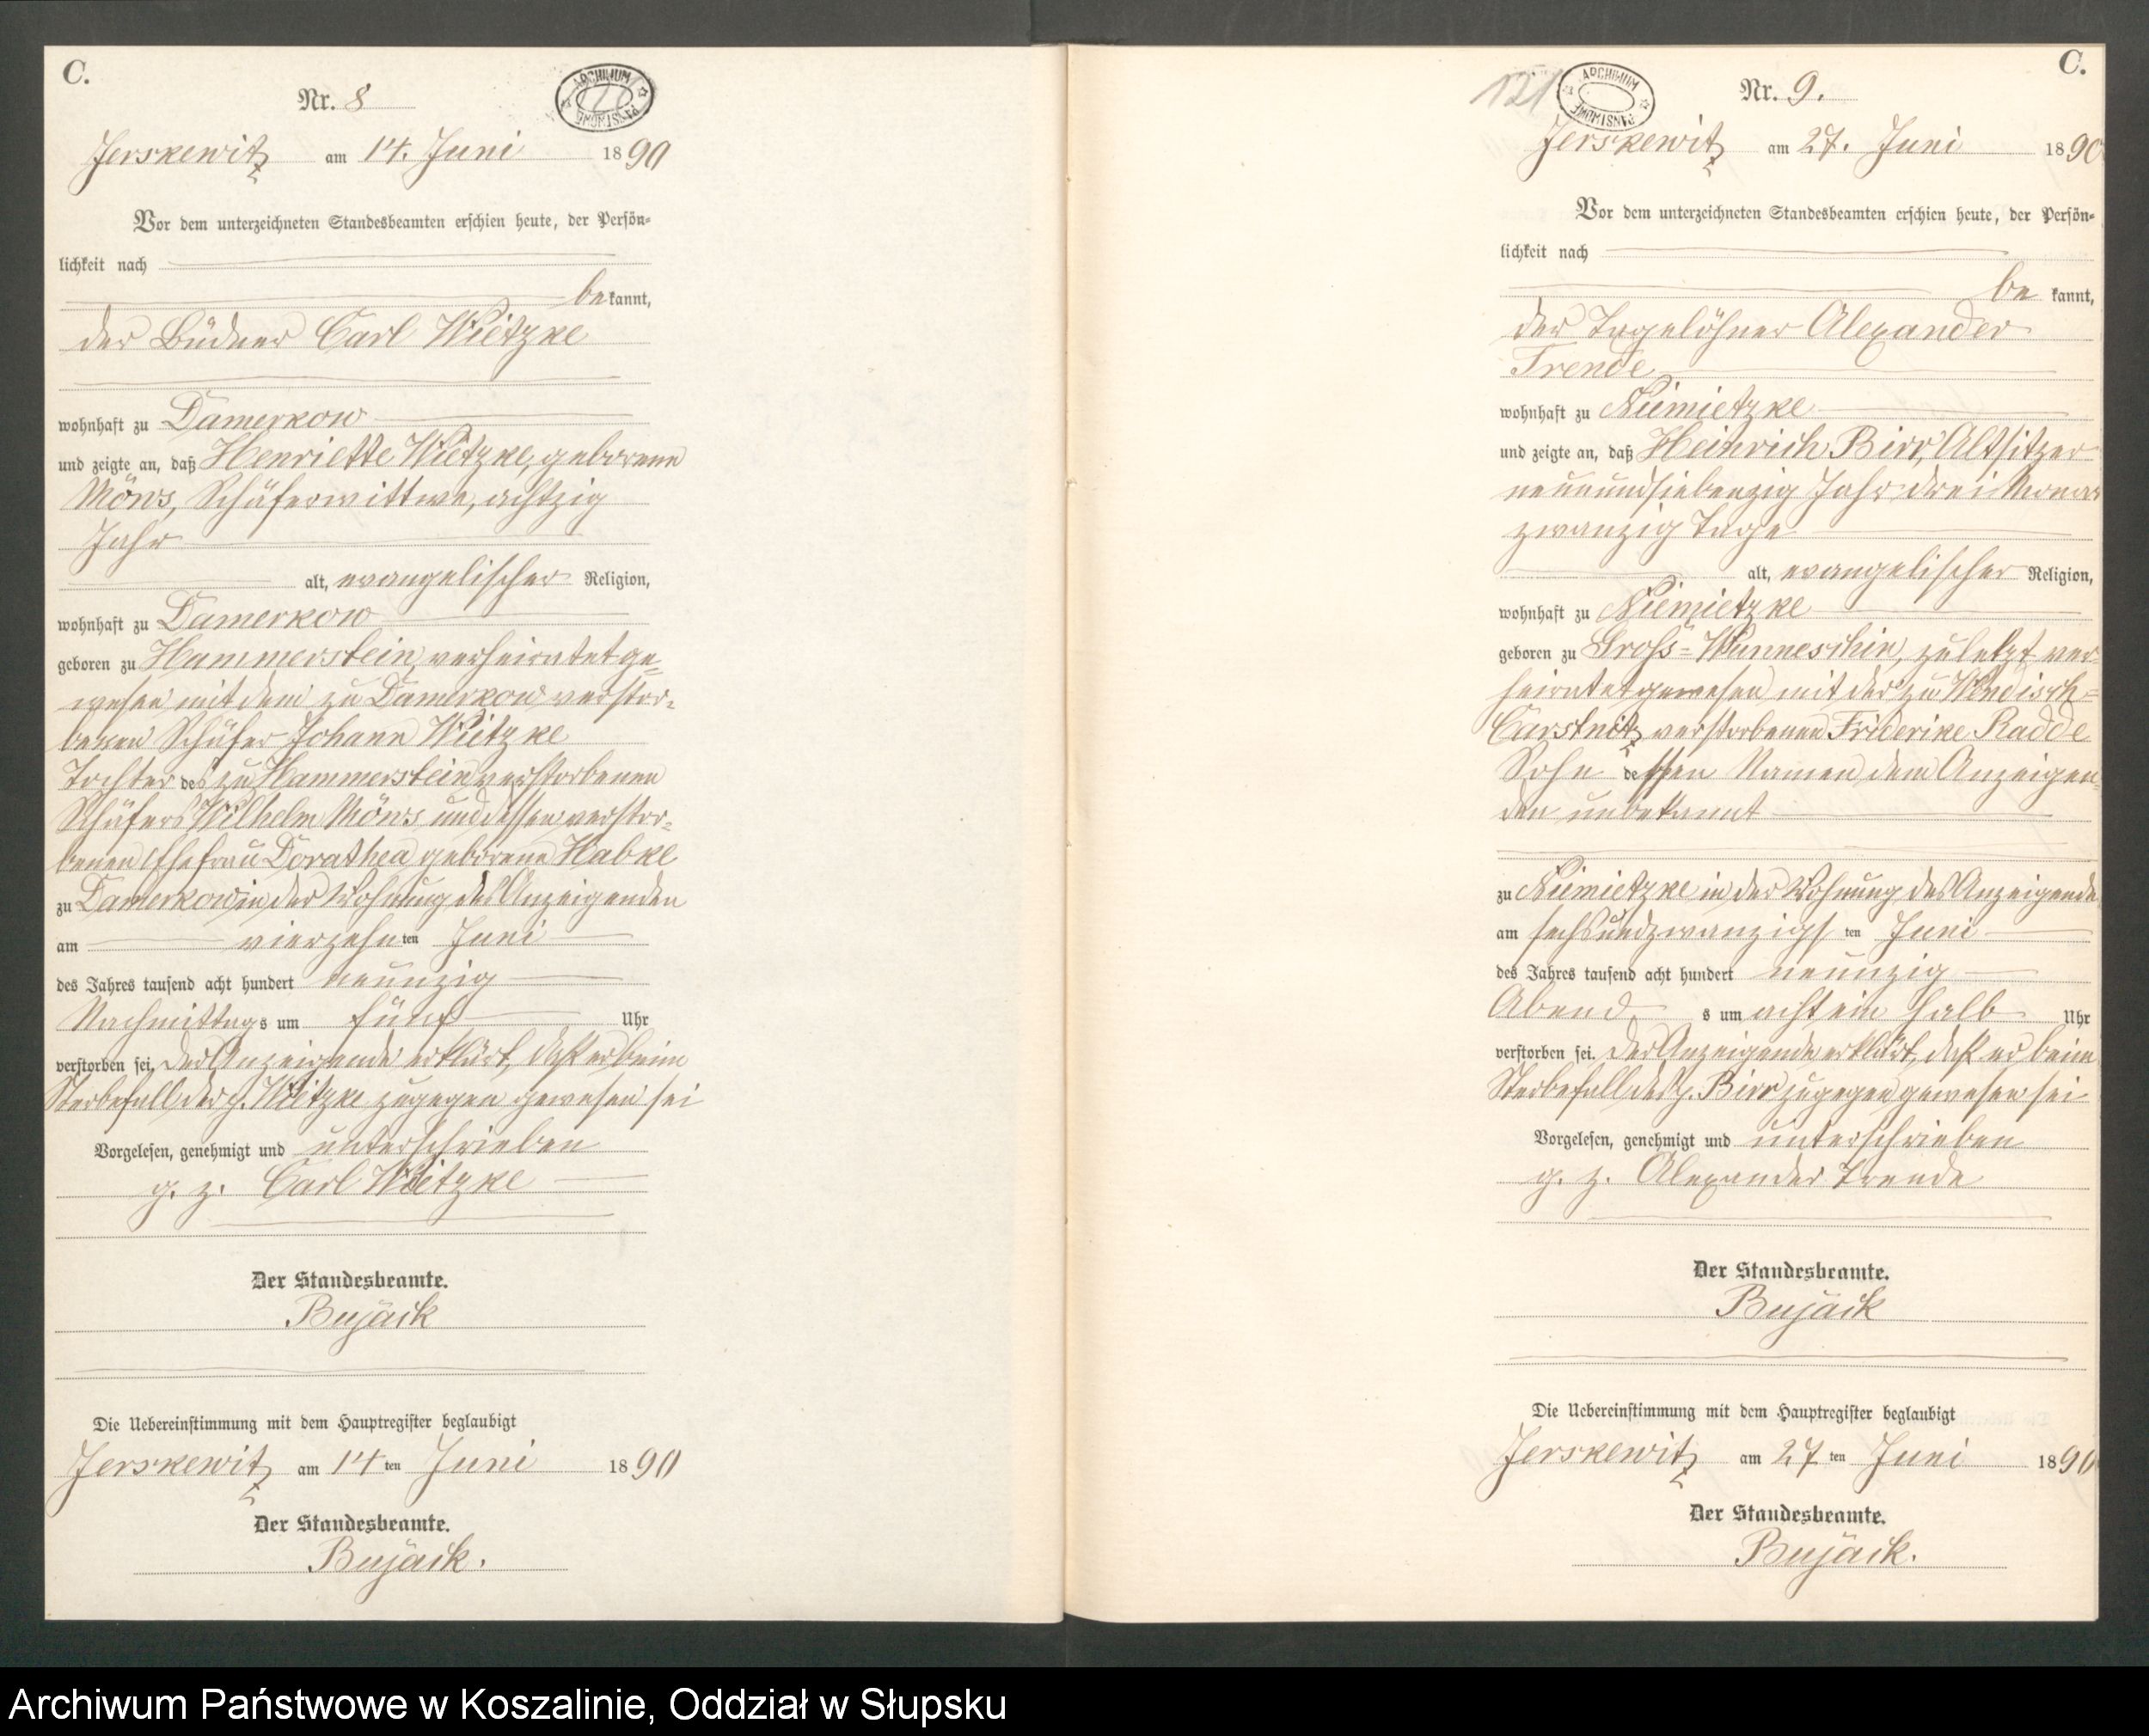 C.
Nr. 8
ARCHIWUM PAŃSTWOWE
Jerskewitz am 14. Juni 1890
Vor dem unterzeichneten Standesbeamten erschien heute, der Persön-
lichkeit nach
bekannt,
der Büdner Carl Wietzke
wohnhaft zu Damerkow
und zeigte an, daß Henriette Wietzke, geborene
Möws, Schäferwittwe, achtzig
Jahr
alt, evangelischer Religion,
wohnhaft zu Damerkow
geboren zu Hammerstein, verheiratet ge-
wesen mit dem zu Damerkow verstor-
benen Schäfer Johann Wietzke
Tochter des zu Hammerstein verstorbenen
Schäfers Wilhelm Möws und dessen verstor-
benen Ehefrau Dorathea geborene Habke
zu Damerkow in der Wohnung des Anzeigenden
am vierzehnten Juni
des Jahres tausend acht hundert neunzig
Nachmittags um fünf Uhr
verstorben sei. Der Anzeigende erklärt, daß er beim
Sterbefall der p. Wietzke zugegen gewesen sei
Vorgelesen, genehmigt und unterschrieben
g. z. Carl Wietzke
Der Standesbeamte.
Bujäck
Die Uebereinstimmung mit dem Hauptregister beglaubigt
Jerskewitz am 14ten Juni 1890
Der Standesbeamte.
Bujäck.
C.
121
ARCHIWUM PAŃSTWOWE
Nr. 9.
Jerskewitz am 27. Juni 1890
Vor dem unterzeichneten Standesbeamten erschien heute, der Persön-
lichkeit nach
be kannt,
der Tagelöhner Alexander
Trende
wohnhaft zu Niemietzke
und zeigte an, daß Heinrich Birr, Altsitzer
neunundsiebenzig Jahr drei Monat
zwanzig Tage
alt, evangelischer Religion,
wohnhaft zu Niemietzke
geboren zu Gross-Wunneschin, zuletzt ver-
heiratet gewesen mit der zu Wendisch-
Carstnitz verstorbenen Friderike Radde
Sohn dessen Namen dem Anzeigen-
den unbekannt
zu Niemietzke in der Wohnung des Anzeigende
am sechsundzwanzigsten Juni
des Jahres tausend acht hundert neunzig
Abends um acht ein halb Uhr
verstorben sei. Der Anzeigende erklärt, daß er beim
Sterbefall des p. Birr zugegen gewesen sei
Vorgelesen, genehmigt und unterschrieben
g. z. Alexander Trende
Der Standesbeamte.
Bujäck
Die Uebereinstimmung mit dem Hauptregister beglaubigt
Jerskewitz am 27ten Juni 1890
Der Standesbeamte.
Bujäck.
Archiwum Państwowe w Koszalinie, Oddział w Słupsku